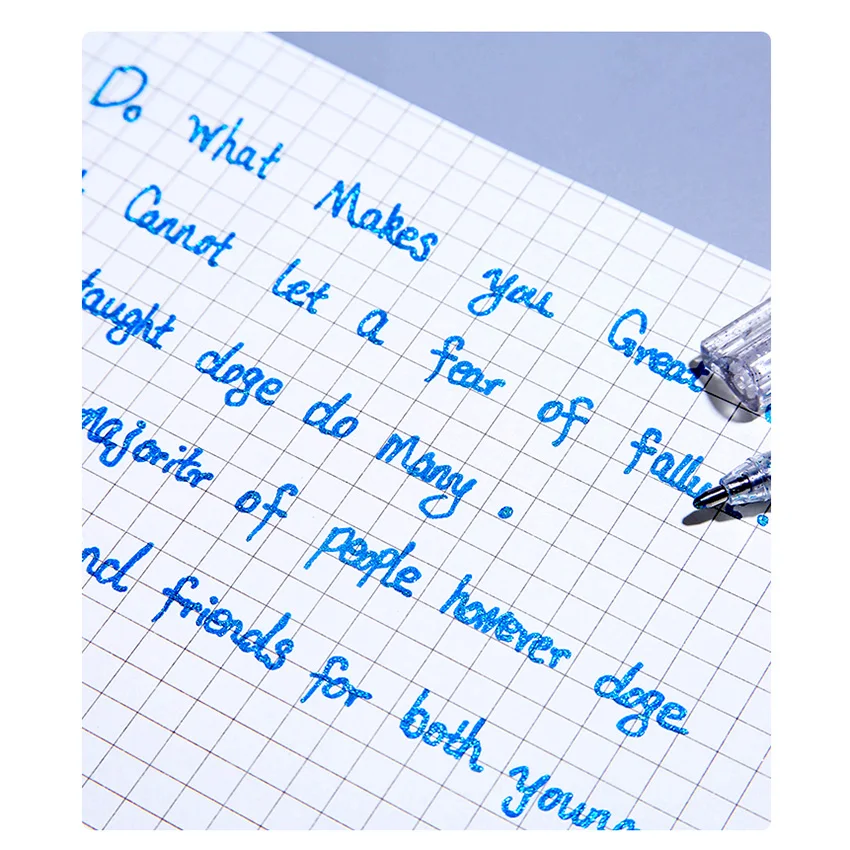 Do what Makes you Great
Cannot let a fear of
taught doge do many.
majoritr of people however doge
friends for both young